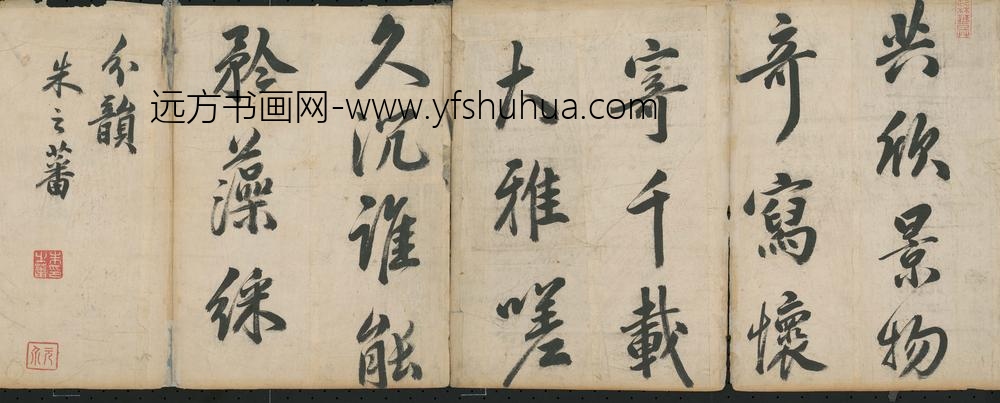 共欣景物
奇寫懷
寄千載
大雅嗟
久沉谁能
矜藻綵
分韻
朱之蕃
朱之蕃印
远方书画网-www.yfshuhua.com